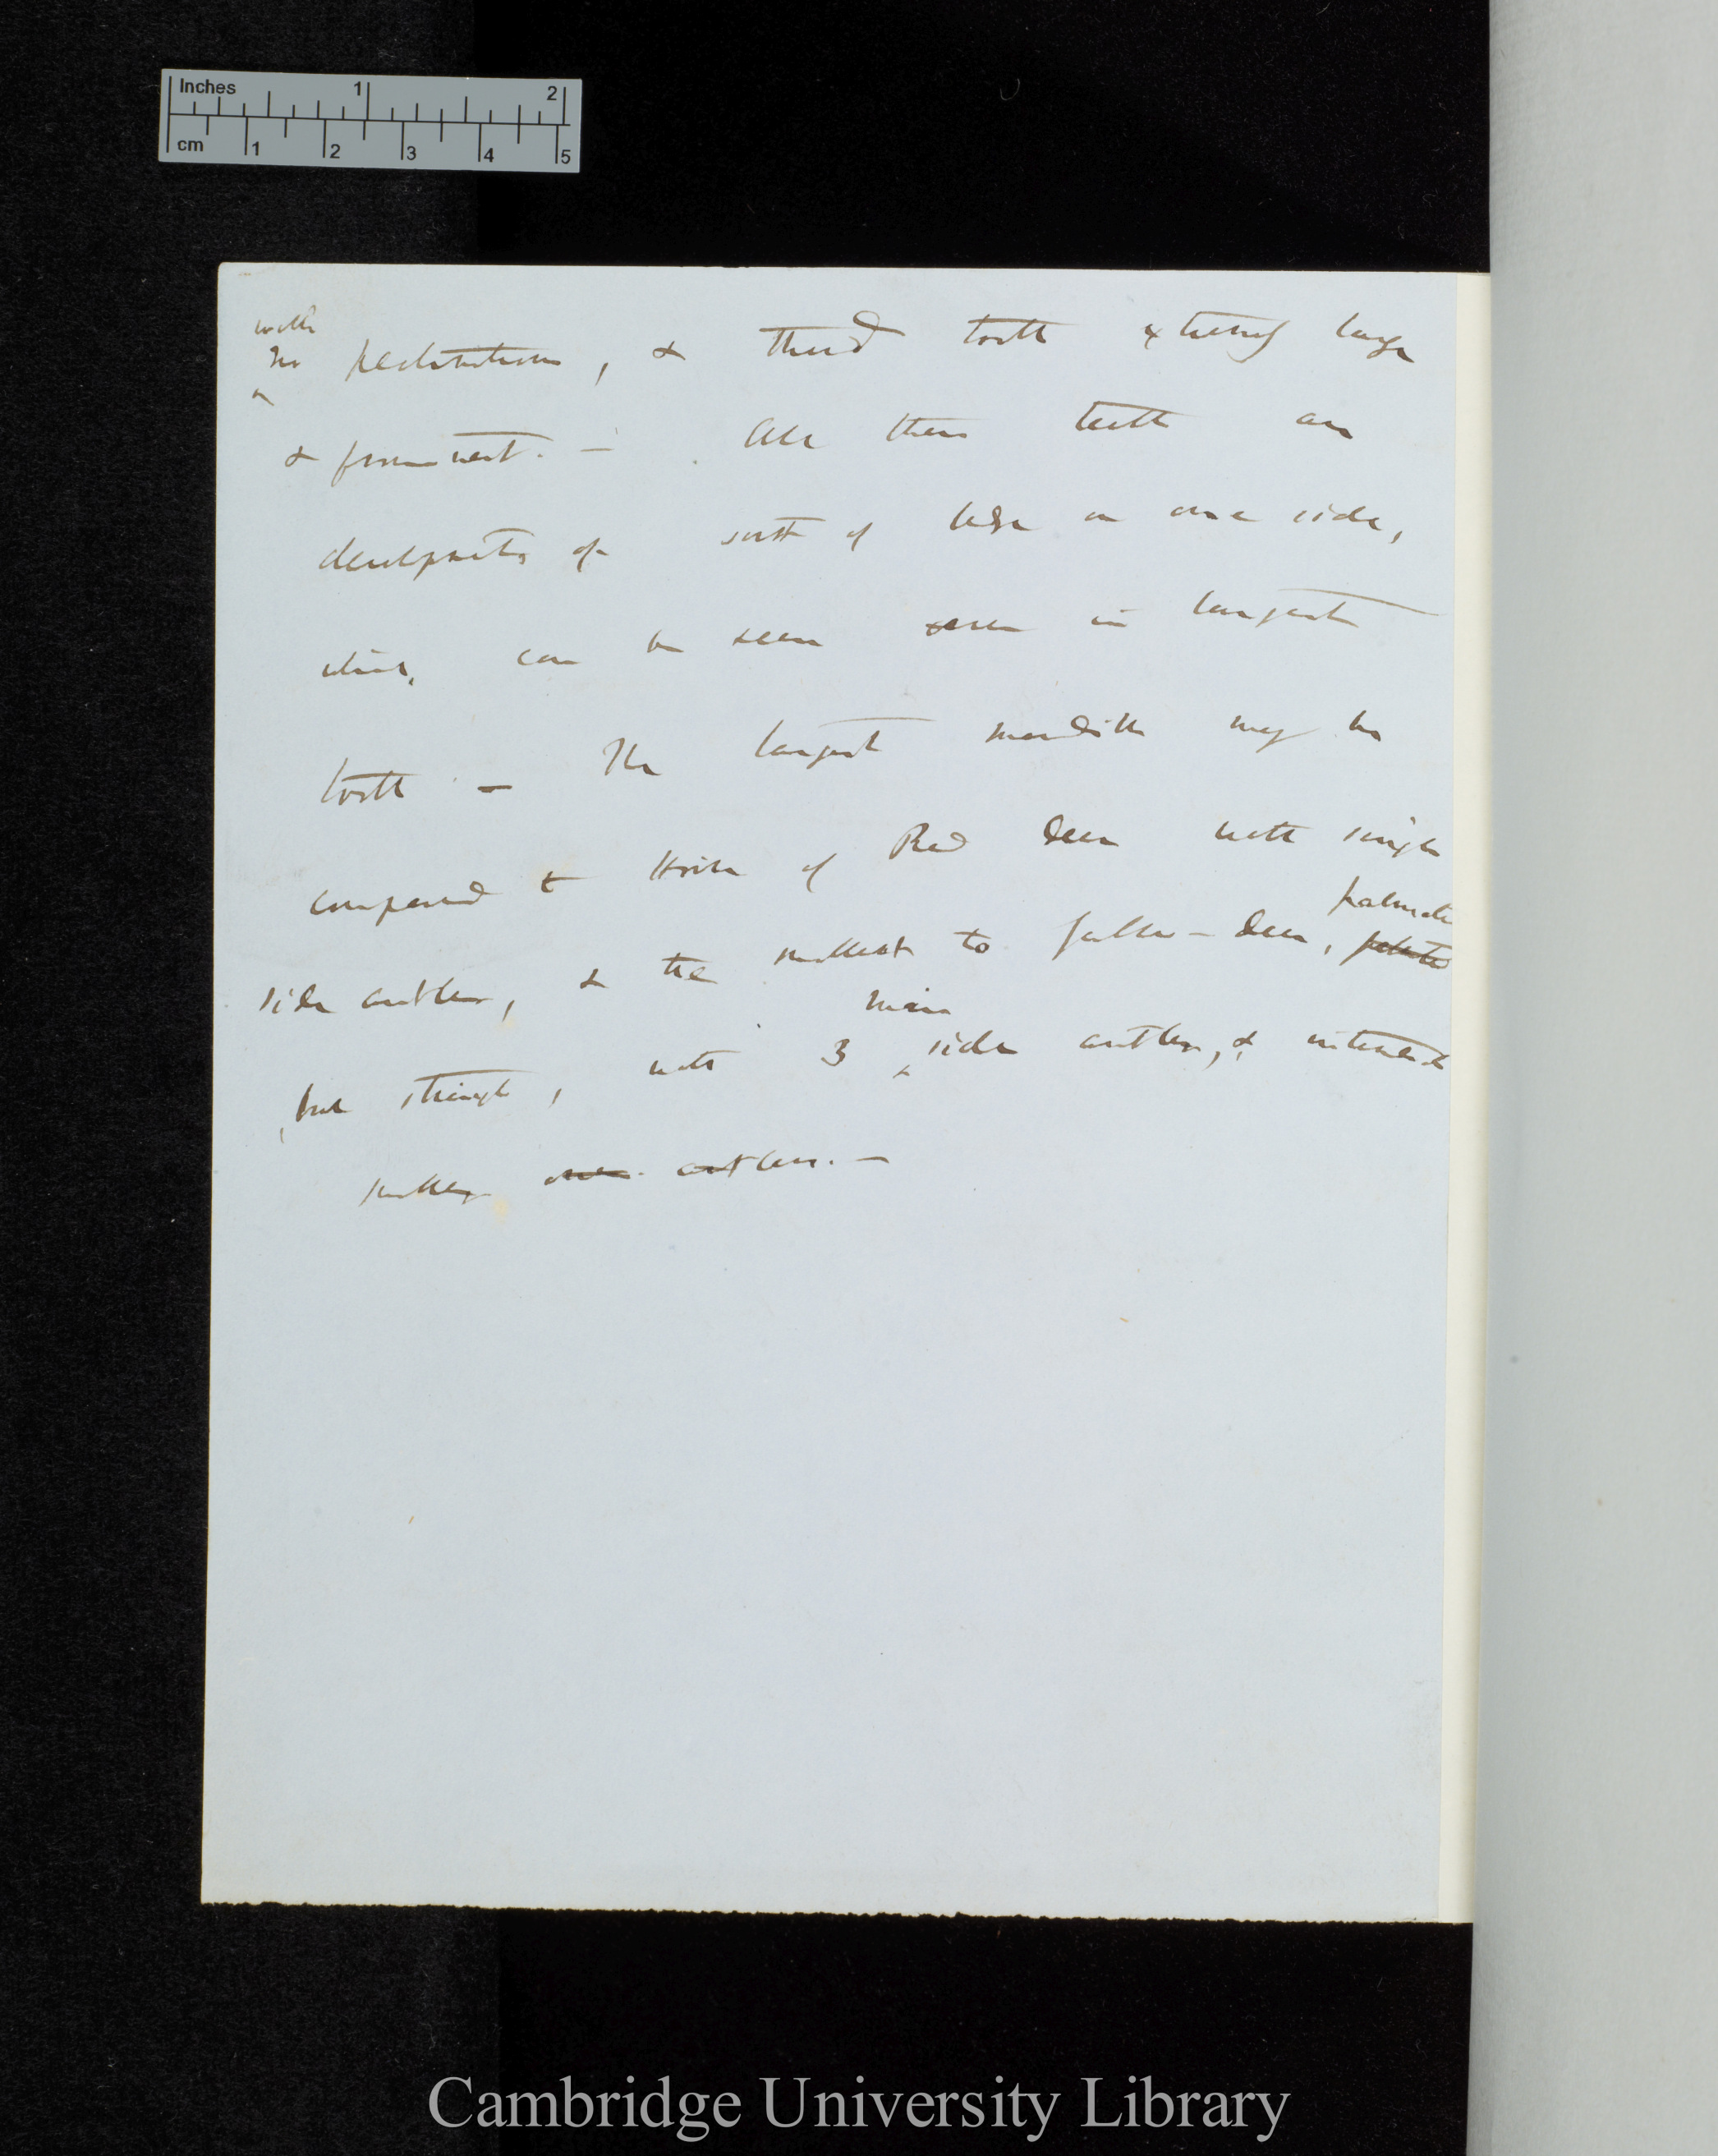 Inches 1 2
cm 1 2 3 4 5
with
no pectinations, & third tooth extremely large
& prominent. — All these teeth are
developments of sort of ledge on one side,
which can be seen even in largest
tooth — The largest mandible may be
compared to Horns of Red Deer with single
palmated
side antlers, & the smallest to fallow-deer,
main
but straight, with 3 side antlers, & intermediate
smaller ones antlers. —
Cambridge University Library